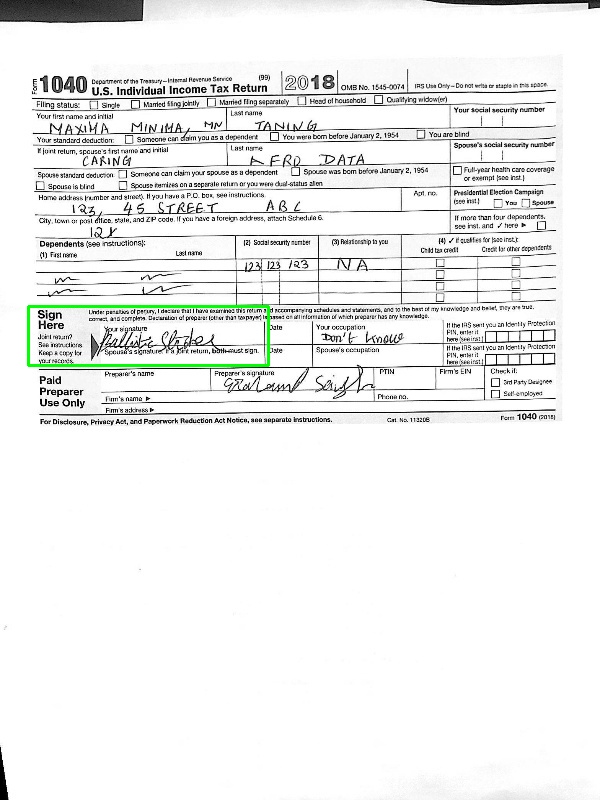 Form 1040 Department of the Treasury—Internal Revenue Service (99) U.S. Individual Income Tax Return 2018 OMB No. 1545-0074 IRS Use Only—Do not write or staple in this space.
Filing status: Single Married filing jointly Married filing separately Head of household Qualifying widow(er)
Your first name and initial Last name Your social security number
MAXIMA MINIMA, MN TANING
Your standard deduction: Someone can claim you as a dependent You were born before January 2, 1954 You are blind
If joint return, spouse's first name and initial Last name Spouse's social security number
CARING AFRD DATA
Spouse standard deduction: Someone can claim your spouse as a dependent Spouse was born before January 2, 1954 Full-year health care coverage
Spouse is blind Spouse itemizes on a separate return or you were dual-status alien or exempt (see inst.)
Home address (number and street). If you have a P.O. box, see instructions. Apt. no. Presidential Election Campaign
123, 45 STREET ABC (see inst.) You Spouse
City, town or post office, state, and ZIP code. If you have a foreign address, attach Schedule 6. If more than four dependents,
see inst. and ✓ here ▶
Dependents (see instructions): (2) Social security number (3) Relationship to you (4) ✓ if qualifies for (see inst.):
(1) First name Last name Child tax credit Credit for other dependents
123 123 123 NA
Sign Here Under penalties of perjury, I declare that I have examined this return and accompanying schedules and statements, and to the best of my knowledge and belief, they are true,
correct, and complete. Declaration of preparer (other than taxpayer) is based on all information of which preparer has any knowledge.
Joint return? See instructions. Keep a copy for your records.
Your signature Date Your occupation If the IRS sent you an Identity Protection PIN, enter it here (see inst.)
Ballistic Strokes Don't know
Spouse's signature. If a joint return, both must sign. Date Spouse's occupation If the IRS sent you an Identity Protection PIN, enter it here (see inst.)
Paid Preparer Use Only Preparer's name Preparer's signature PTIN Firm's EIN Check if:
3rd Party Designee
Firm's name ▶ Phone no. Self-employed
Firm's address ▶
For Disclosure, Privacy Act, and Paperwork Reduction Act Notice, see separate instructions. Cat. No. 11320B Form 1040 (2018)